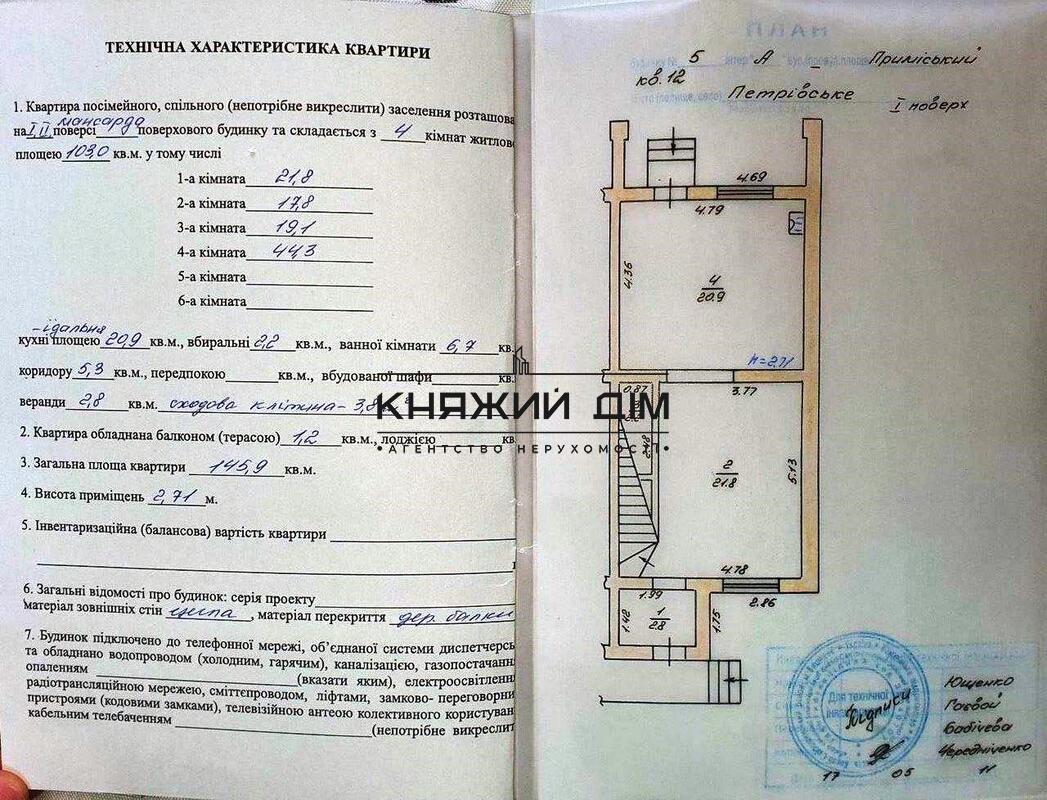 ТЕХНІЧНА ХАРАКТЕРИСТИКА КВАРТИРИ
1. Квартира посімейного, спільного (непотрібне викреслити) заселення розташова
мансарда
на I, II поверсі поверхового будинку та складається з 4 кімнат житлово
площею 103,0 кв.м. у тому числі
1-а кімната 21,8
2-а кімната 17,8
3-а кімната 19,1
4-а кімната 44,3
5-а кімната
6-а кімната
-їдальня
кухні площею 20,9 кв.м., вбиральні 2,2 кв.м., ванної кімнати 6,7 кв.
коридору 5,3 кв.м., передпокою кв.м., вбудованої шафи кв.
веранди 2,8 кв.м. сходова клітина - 3,8
2. Квартира обладнана балконом (терасою) 1,2 кв.м., лоджією кв
3. Загальна площа квартири 145,9 кв.м.
4. Висота приміщень 2,71 м.
5. Інвентаризаційна (балансова) вартість квартири
6. Загальні відомості про будинок: серія проекту
Матеріал зовнішніх стін цегла, матеріал перекриття дер. балки
7. Будинок підключено до телефонної мережі, об'єднаної системи диспетчерсь
та обладнано водопроводом (холодним, гарячим), каналізацією, газопостачанн
опаленням (вказати яким), електроосвітлен
радіотрансляційною мережею, сміттєпроводом, ліфтами, замково- переговорни
пристроями (кодовими замками), телевізійною антеою колективного користуван
кабельним телебаченням (непотрібне викреслит
КНЯЖИЙ ДІМ
•АГЕНТСТВО НЕРУХОМОСТІ•
5 А - Приміський
кв. 12
Петрівське
I поверх
4.69
4.79
4.36
4
20.9
h=2.71
0.87
3.77
2.48
2
21.8
5.13
4.78
1.99
2.86
1.42
1
2.8
1.75
Для технічної
Підписи
Ющенко
Гаєвой
Бабічева
Чередніченко
17 05 11